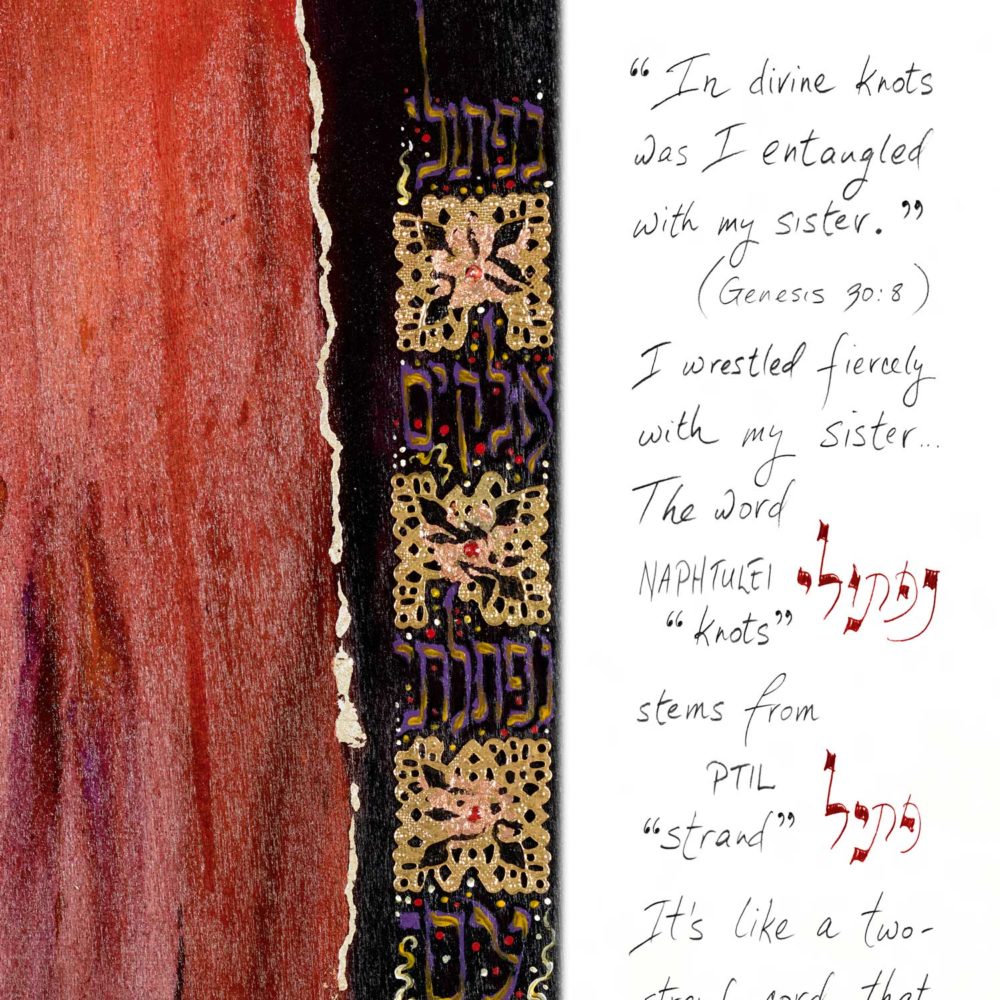 נפתולי
אלקים
נפתלתי
עם
“In divine knots
was I entangled
with my sister.”
(Genesis 30:8)
I wrestled fiercely
with my sister...
The word
NAPHTULEI נפתולי
“knots”
stems from
PTIL פתיל
“strand”
It's like a two-